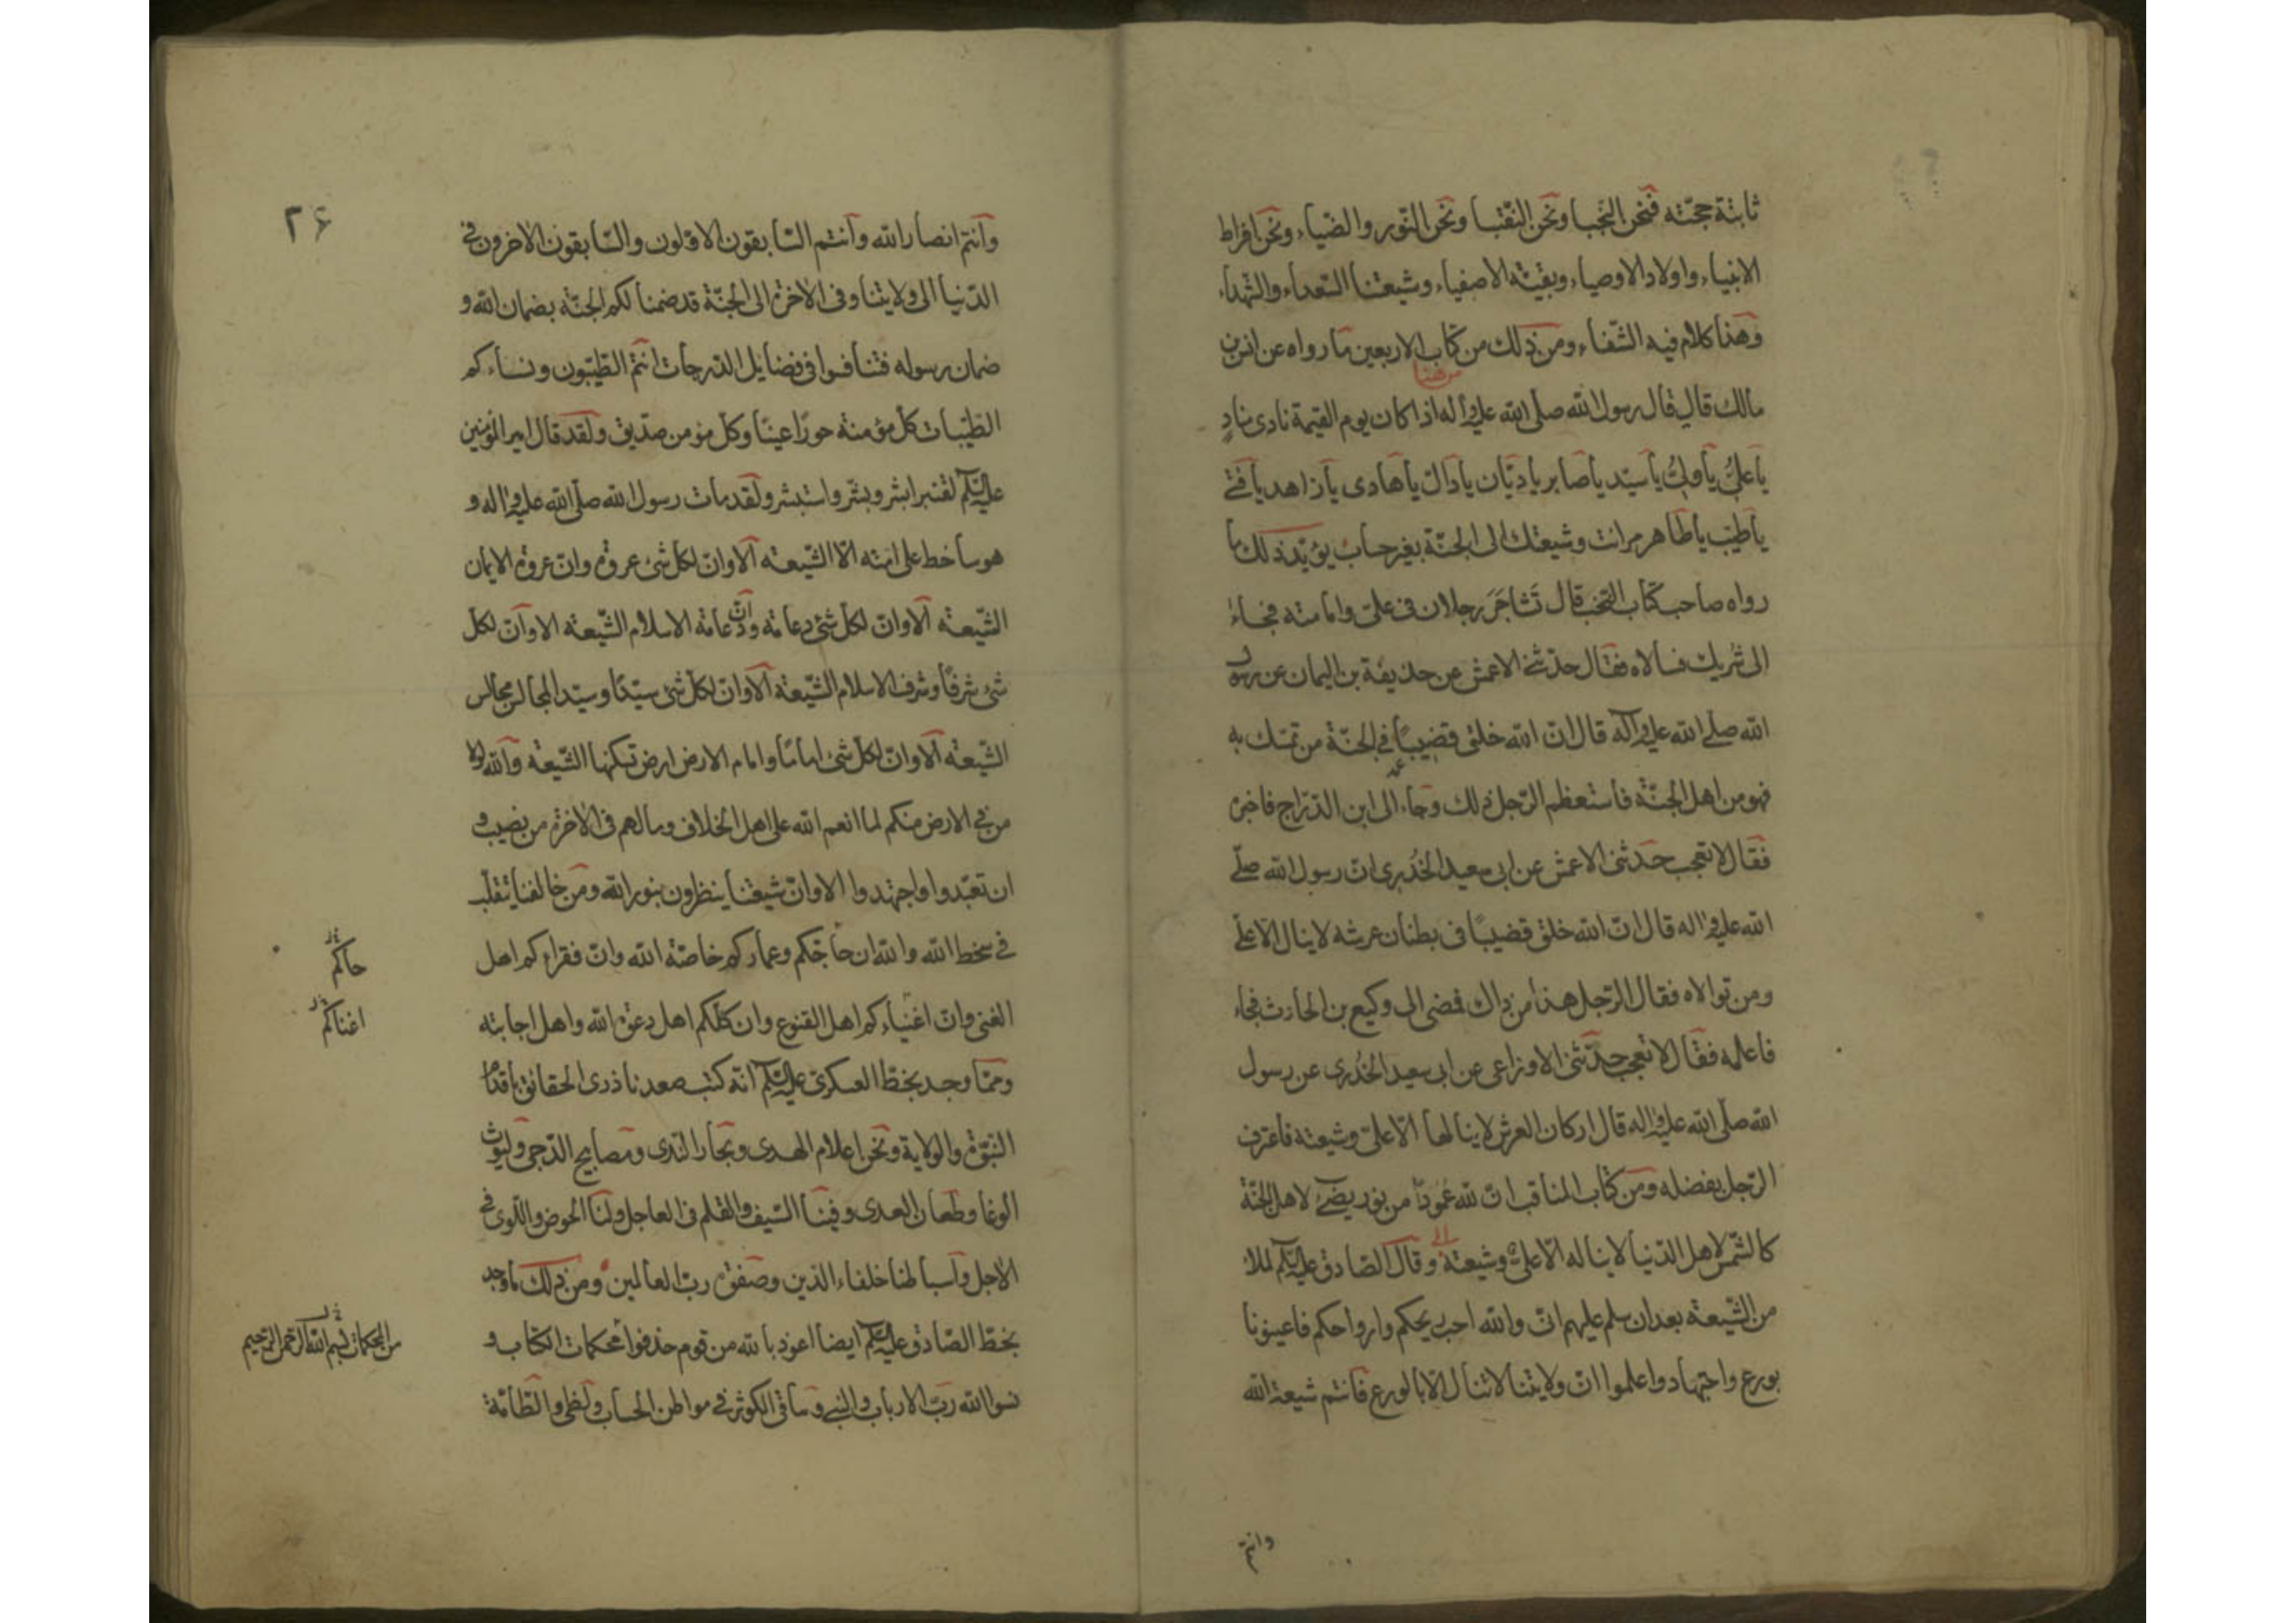 ثابتة حجّته فنحن النجبا ونحن النّقبا ونحن النّور والضّياء ونحن افراط
الانبياء واولاد الاوصياء وبقيّة الاصفياء وشيعتنا السّعداء والشّهداء
وهذا كلام فيه الشّفاء ومن ذلك من كتاب الاربعين ما رواه عن انس بن
من هنا
مالك قال قال رسول الله صلّى الله عليه وآله اذا كان يوم القيمة نادى منادٍ
يا علىّ يا ولىّ يا سيّد يا صابر يا ديّان يا دالّ يا هادى يا زاهد يا فتى
يا طيّب يا طاهر مر انت وشيعتك الى الجنّة بغير حساب يؤيّد ذلك ما
رواه صاحب كتاب النخب قال تَشاجَرَ رجلان فى علىّ وامامته فجاءا
الى شريك فسالاه فقال حدّثنى الاعمش عن حذيفة بن اليمان عن رسول
الله صلّى الله عليه وآله قال انّ الله خلق قضيبًا فى الجنّة من تمسّك به
فهو من اهل الجنّة فاستعظم الرّجل ذلك وجاء الى ابن الدّرّاج فاخبره
فقال لا تعجب حدثنى الاعمش عن ابى سعيد الخُدرى انّ رسول الله صلّى
الله عليه واله قال انّ الله خلق قضيبًا فى بطنان عرشه لا ينال الّا علىّ
ومن توالاه فقال الرّجل هذا من ذاك فمضى الى وكيع بن الحارث فجاء
فاعلمه فقال لا تعجب حدّثنى الاوزاعى عن ابى سعيد الخُدرى عن رسول
الله صلّى الله عليه واله قال اركان العرش لا ينالها الّا علىّ وشيعته فاعترف
الرّجل بفضله ومن كتاب المناقب انّ لله عمودًا من نور يضىء لاهل الجنّة
كالشّمس لاهل الدّنيا لا يناله الّا علىّ وشيعته وقال الصّادق عليه السّلم لملاء
من الشّيعة بعد ان سلم عليهم انّى والله احب ريحكم وارواحكم فاعينونا
بورع واجتهاد واعلموا انّ ولايتنا لا تنال الّا بالورع فانتم شيعة الله
وانتم
٢۶
وانتم انصار الله وانتم السّابقون الاوّلون والسّابقون الاخرون فى
الدّنيا الى ولايتنا وفى الاخرة الى الجنّة قد ضمنا لكم الجنّة بضمان الله و
ضمان رسوله فتنافسوا فى فضايل الدّرجات انتم الطّيّبون ونساءكم
الطّيّبات كلّ مؤمنة حورًا عينًا وكلّ مؤمن صدّيق ولقد قال امير المؤمنين
عليه السّلم لقنبر ابشر وبشّر واستبشر ولقد مات رسول الله صلّى الله عليه واله و
هو ساخط على امّته الّا الشّيعة الا وانّ لكلّ شئ عروة وانّ عروة الايمان
الشّيعة الا وانّ لكلّ شئ دعامة وانّ دعامة الاسلام الشّيعة الا وانّ لكلّ
شئ شرفًا وشرف الاسلام الشّيعة الا وانّ لكلّ شئ سيّدًا وسيّد المجالس مجالس
الشّيعة الا وانّ لكلّ شئ امامًا وامام الارض ارض تسكنها الشّيعة والله لولا
من فى الارض منكم لما انعم الله على اهل الخلاف ومالهم فى الاخرة من نصيب و
ان تعبّدوا واجتهدوا الا وانّ شيعتنا ينظرون بنور الله ومن خالفنا يتقلّب
فى سخط الله والله ان حاجّكم وعماركم خاصّة الله وانّ فقراءكم اهل
حاكم
الغنى وانّ اغنياءكم اهل القنوع وان كلّكم اهل دعوة الله واهل اجابته
اغناكم
وممّا وجد بخطّ العسكرى عليه السّلم انّه كتب صعدنا ذرى الحقائق باقدام
النّبوّة والولاية ونحن اعلام الهدى وبحار النّدى ومصابيح الدّجى وليوث
الوغا وطعان العدى وفينا السّيف والقلم فى العاجل ولنا الحوض واللّوى فى
الاجل واسباطنا خلفاء الدّين وصفوة ربّ العالمين ومن ذلك ما وجد
بخطّ الصّادق عليه السّلم ايضا اعوذ بالله من قوم حذفوا محكمات الكتاب و
من المحكمات بسم الله الرّحمن الرّحيم
نسوا الله ربّ الارباب والنبى وساقى الكوثر فى مواطن الحساب ولظى والطّامّة